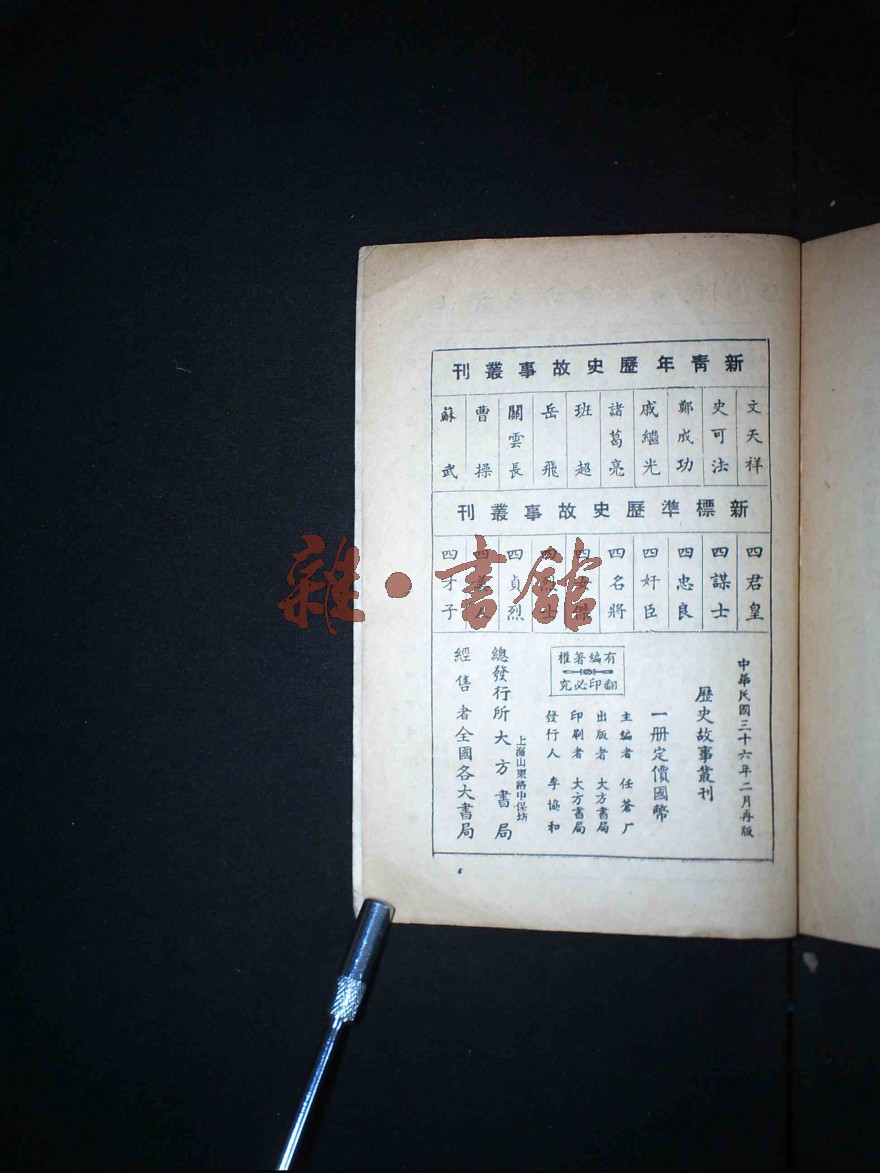 新青年歷史故事叢刊
文天祥
史可法
鄭成功
戚繼光
諸葛亮
班超
岳飛
關雲長
曹操
蘇武
新標準歷史故事叢刊
四君皇
四謀士
四忠良
四奸臣
四名將
四女傑
四烈士
四貞烈
四美人
四才子
中華民國三十六年二月再版
歷史故事叢刊
一冊定價國幣
有編著權
翻印必究
主編者 任蒼厂
出版者 大方書局
印刷者 大方書局
發行人 李協和
上海山東路中保坊
總發行所大方書局
經售者全國各大書局
雜·書館